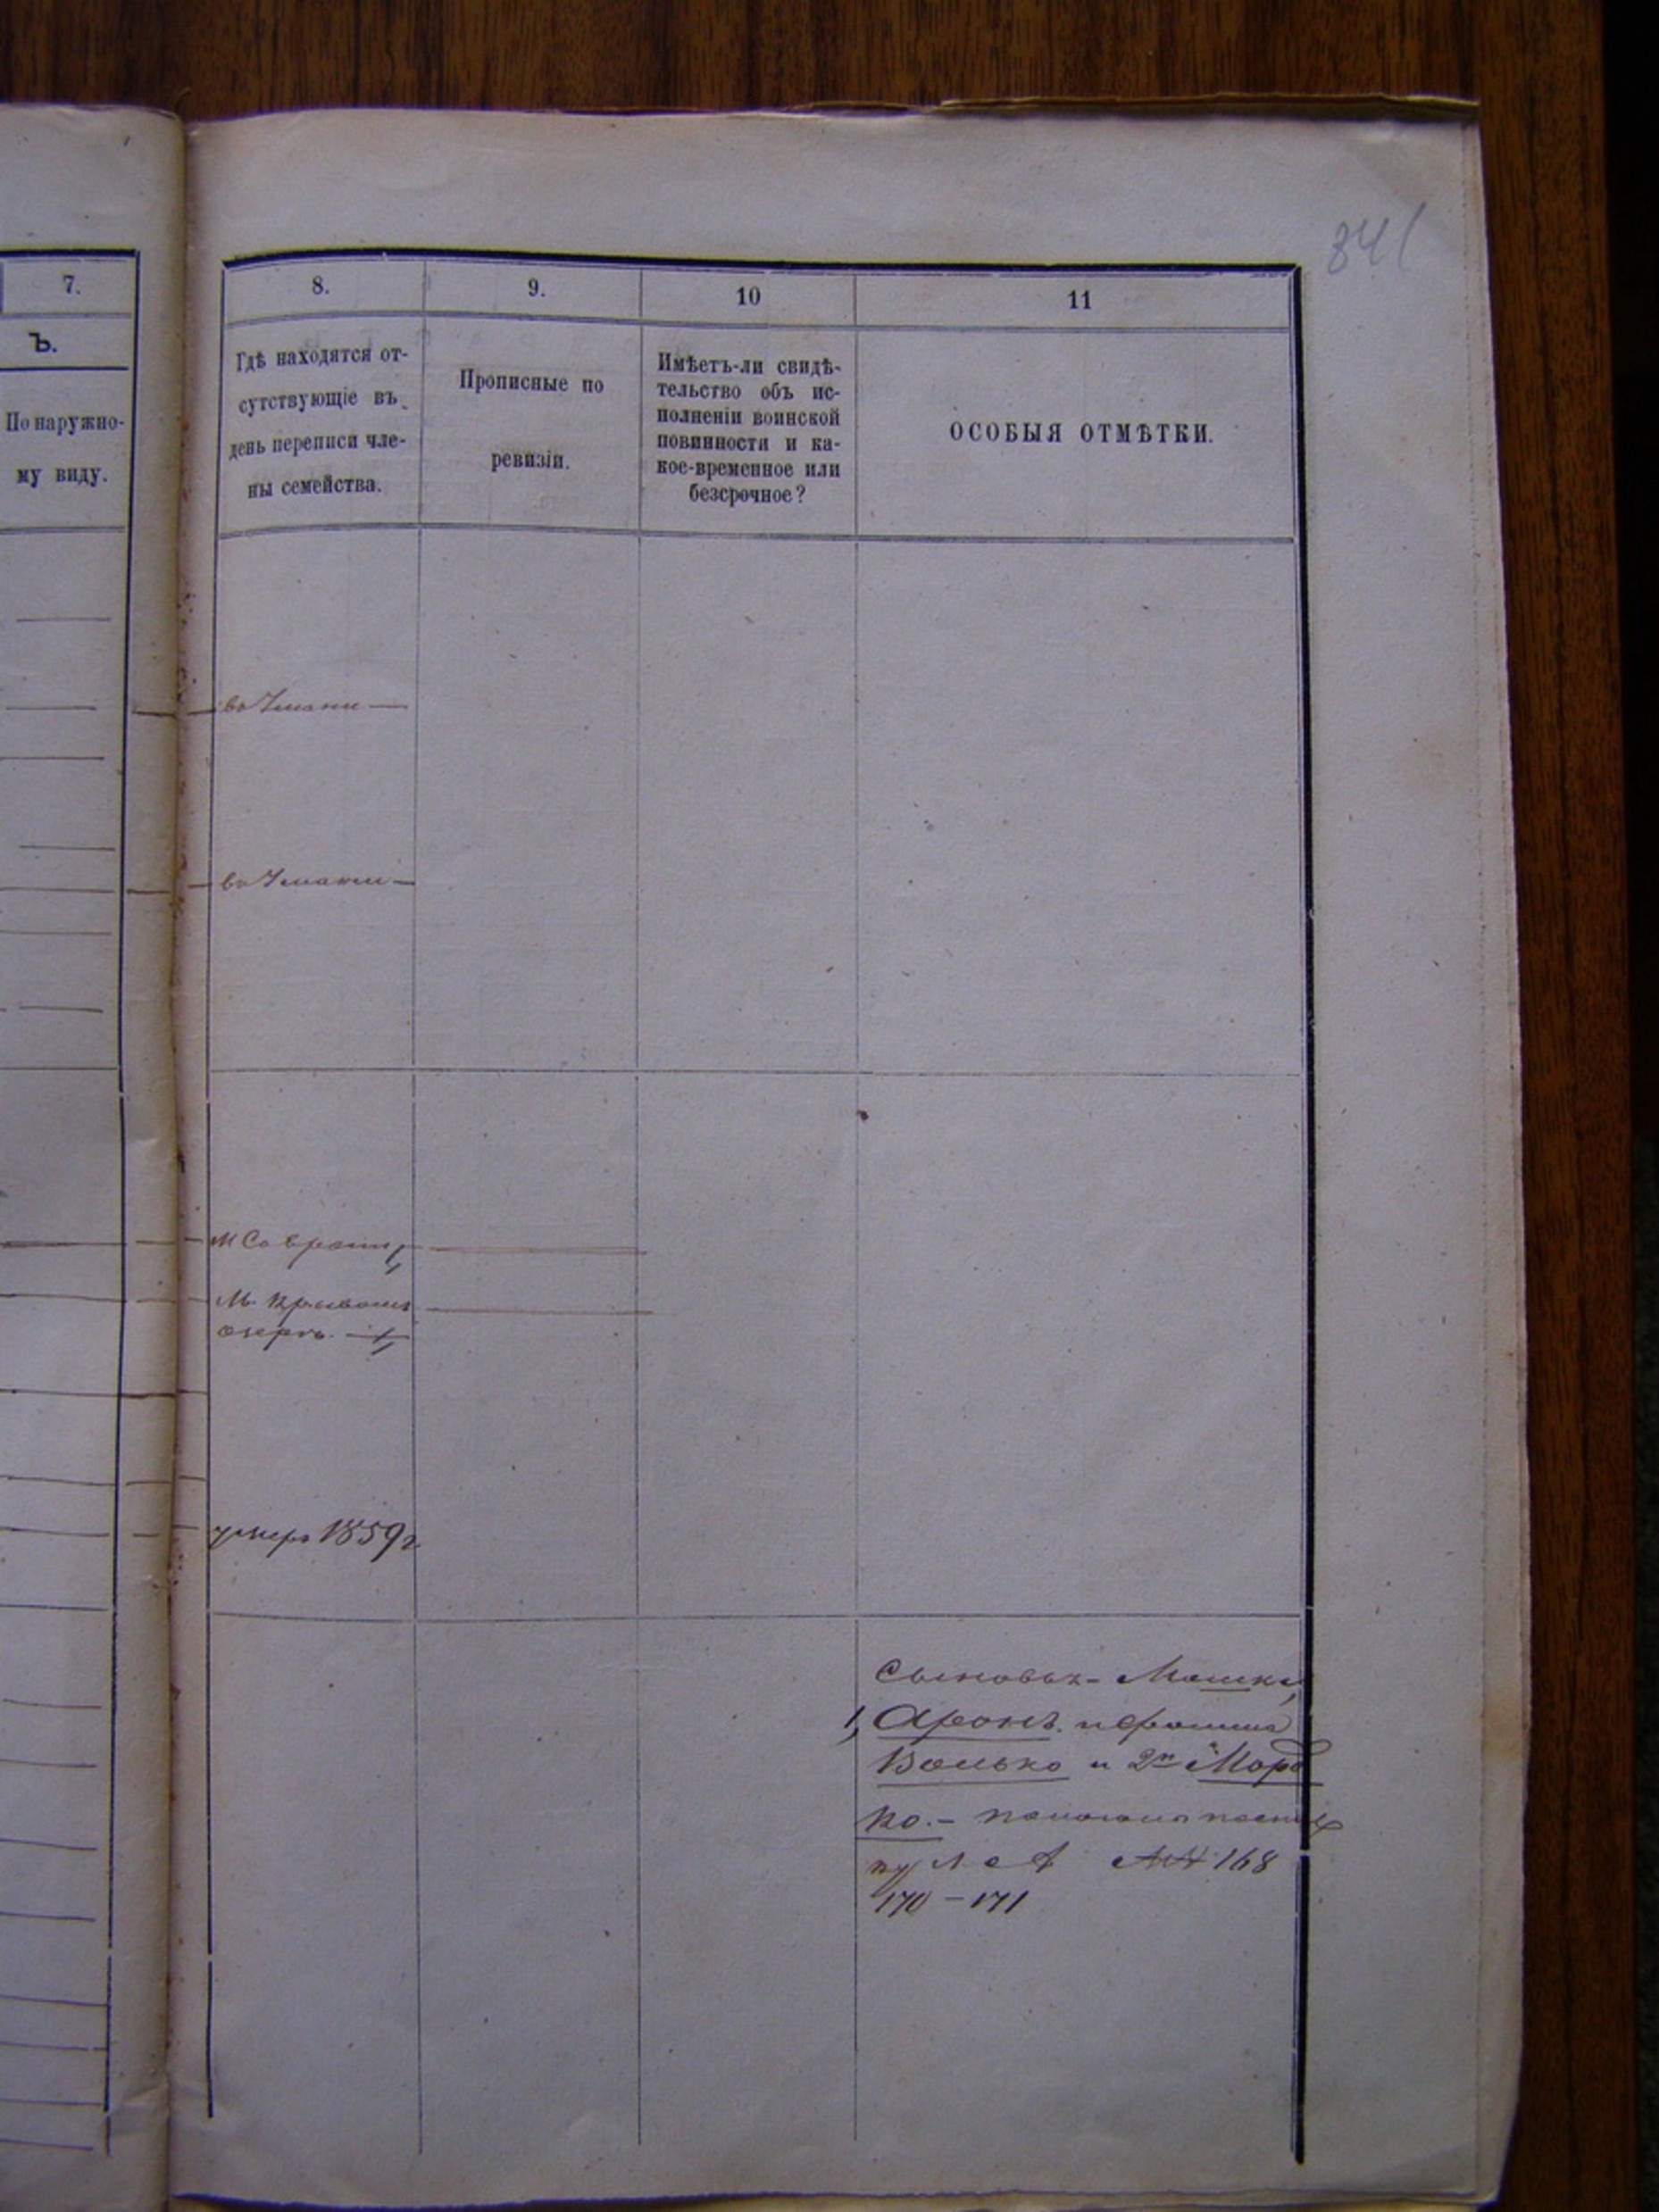 341
7.
Ъ.
По наружно-
му виду.
8.
Гдѣ находятся от-
сутствующіе въ
день переписи чле-
ны семейства.
9.
Прописные по
ревизіи.
10
Имѣетъ-ли свидѣ-
тельство объ ис-
полненіи воинской
повинности и ка-
кое-временное или
безсрочное?
11
ОСОБЫЯ ОТМѢТКИ.
во Умани
во Умани
м Саврани
М. Кривомъ
озерѣ.
умеръ 1859 г
Сыновья - Мошка,
1, Аронъ.
Волько и 2й Морд
ко. -
168
170 - 171